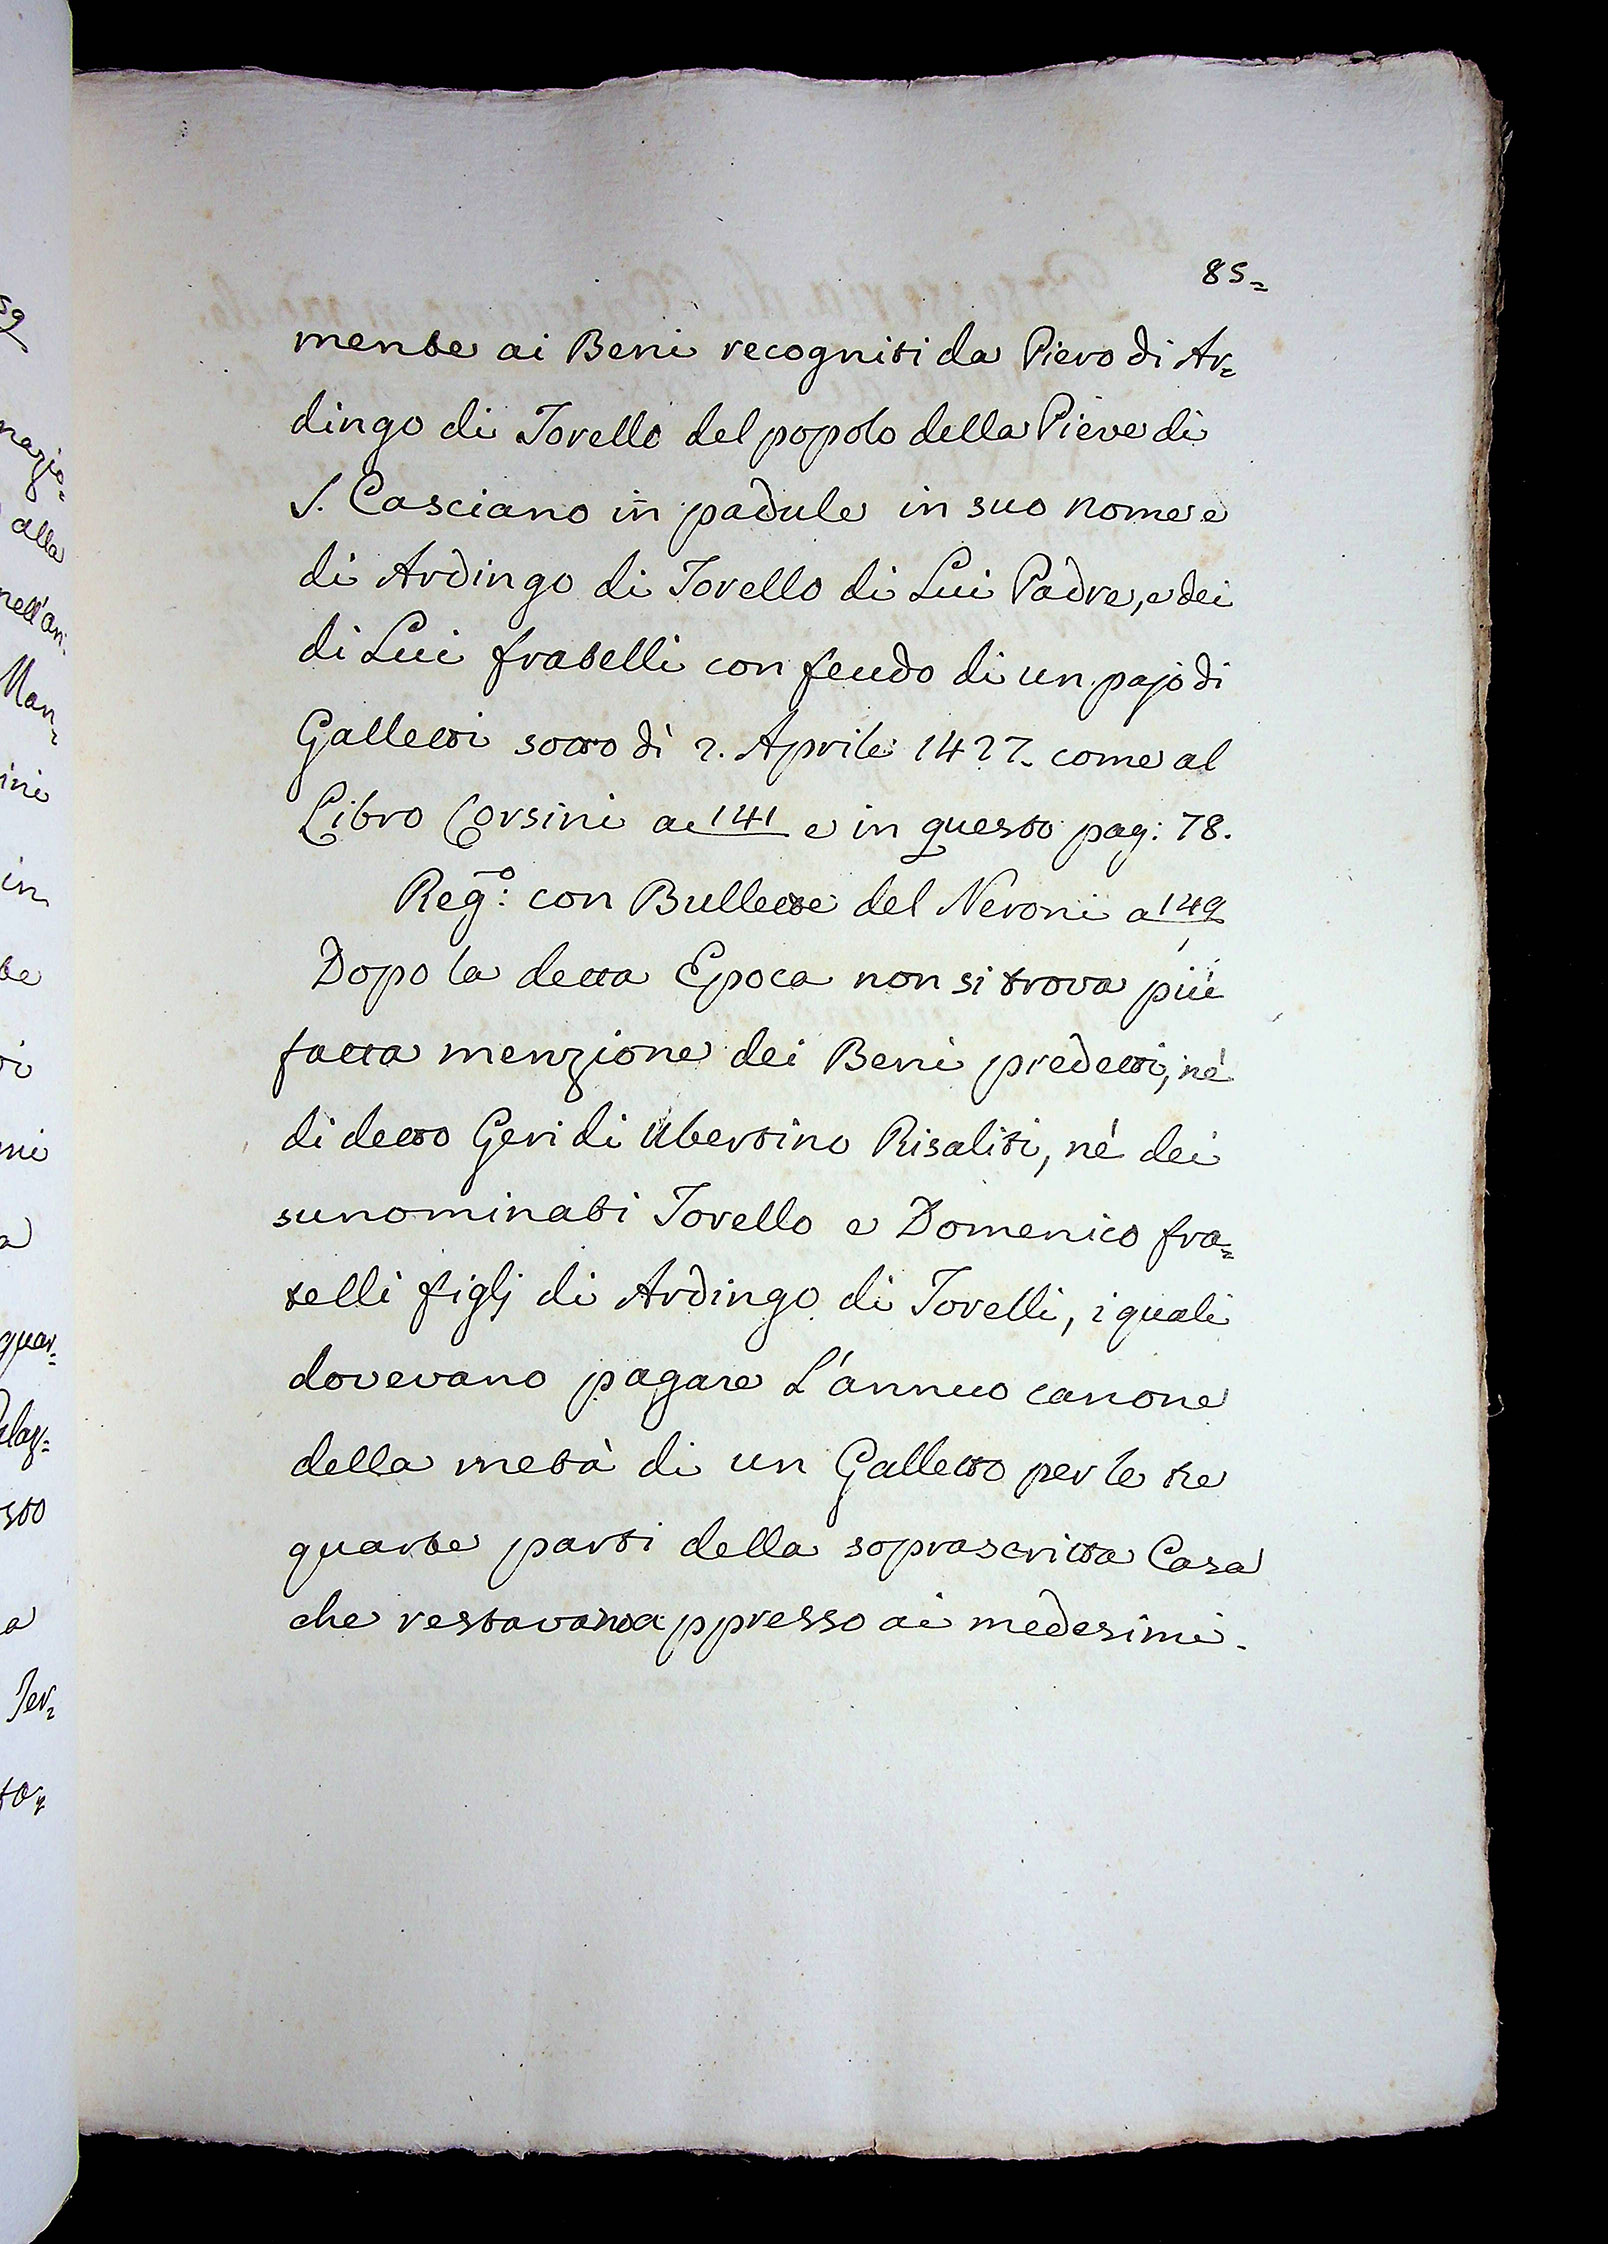 85=
mente ai Beni recogniti da Piero di Ar=
dingo di Torello del popolo della Pieve di
S. Casciano in padule in suo nome e
di Ardingo di Torello di Lui Padre, e dei
di Lui fratelli con feudo di un pajo di
Galletti sotto dì 2. Aprile 1427. come al
Libro Corsini a 141 e in questo pag: 78.
Reg:º con Bullette del Neroni a 149
Dopo la detta Epoca non si trova più
fatta menzione dei Beni predetti, né
di detto Geri di Ubertino Risaliti, né dei
sunominati Torello e Domenico fra=
telli figlj di Ardingo di Torelli, i quali
dovevano pagare L'annuo canone
della metà di un Galletto per le tre
quarte parti della soprascritta Casa
che restavano appresso ai medesimi.